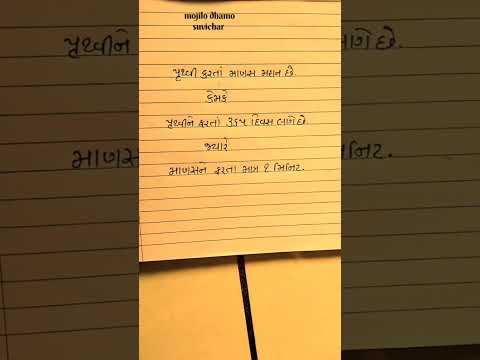 mojilo dhamo
suvichar
પૃથ્વી કરતાં માણસ મહાન છે.
કેમકે
પૃથ્વીને ફરતાં ૩૬૫ દિવસ લાગે છે.
જ્યારે
માણસને ફરતા માત્ર ૧ મિનિટ.